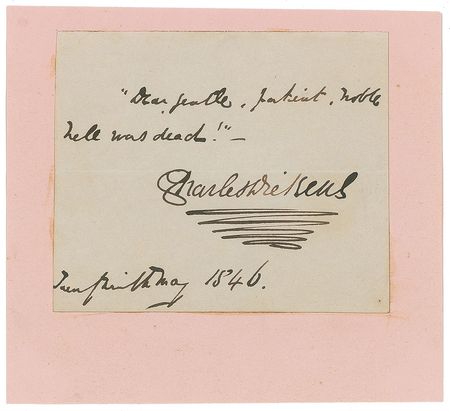 "Dear, gentle, patient, noble
Nell was dead!" —
Charles Dickens
May 1846.